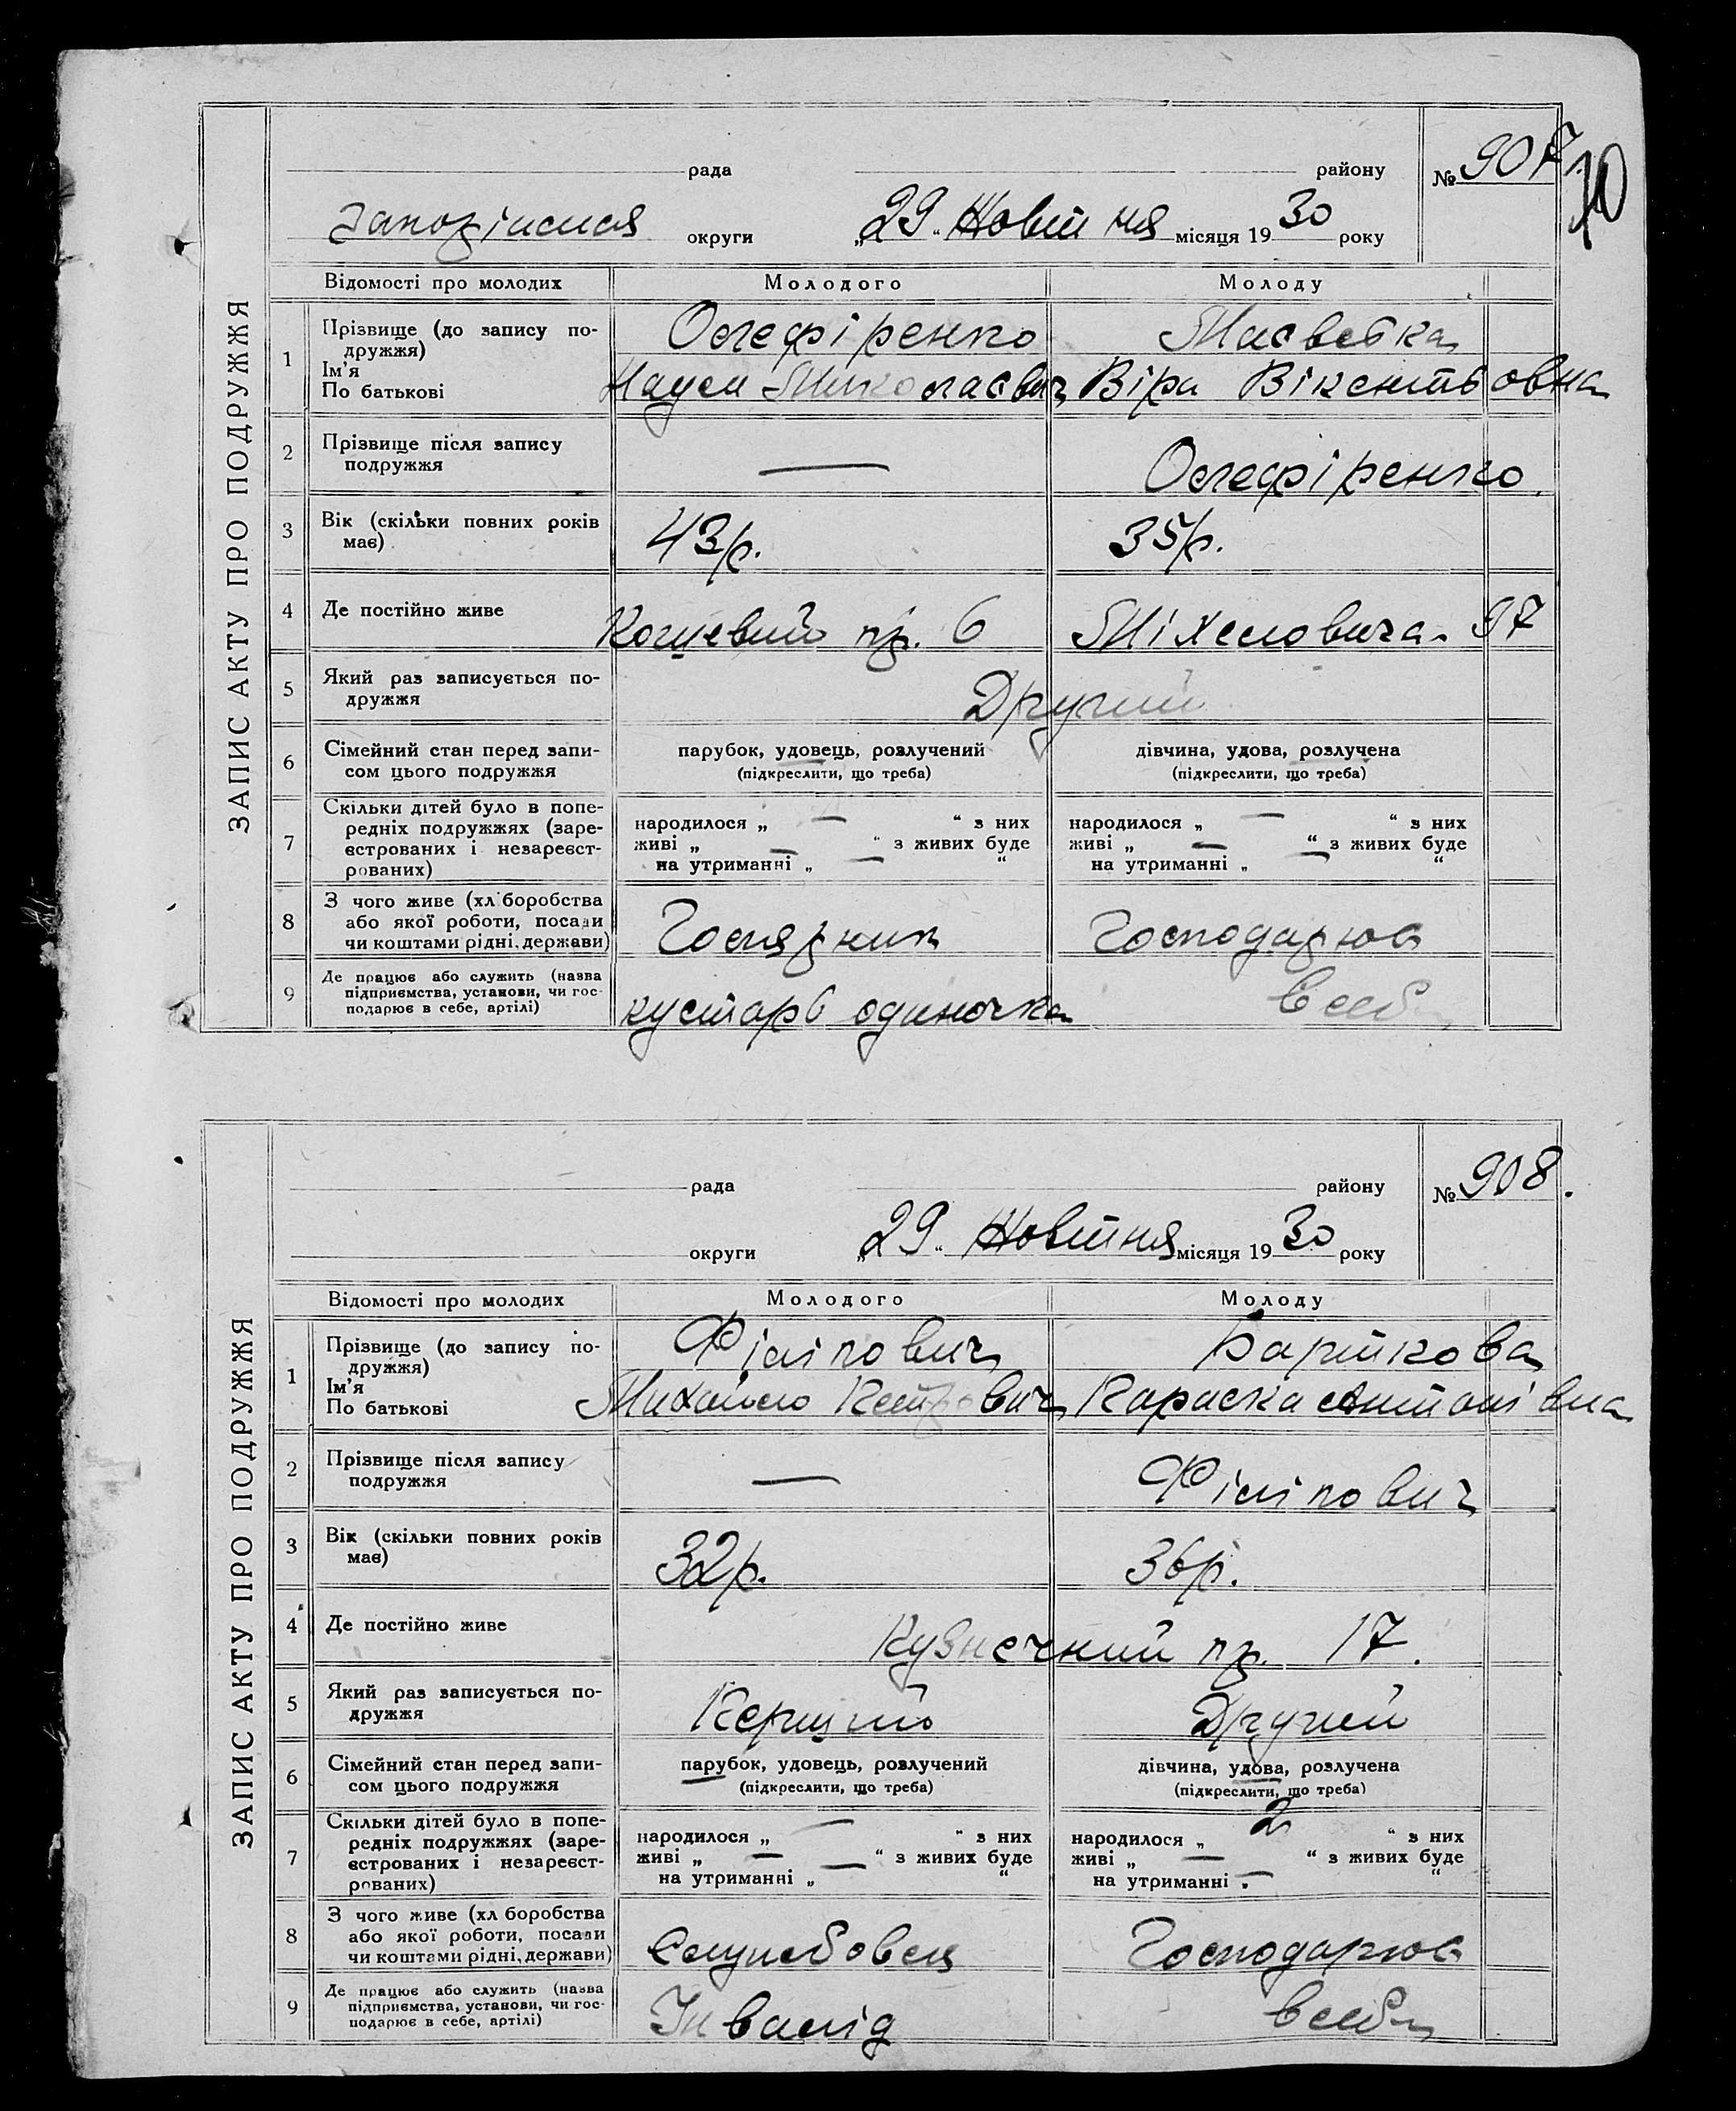 рада району № 907.
10
округи „29“ Жовтня місяця 1930 року
ЗАПИС АКТУ ПРО ПОДРУЖЖЯ
Відомості про молодих Молодого Молоду
1 Прізвище (до запису подружжя) Олефіренко
Ім'я
По батькові Наум Миколаєвич Віра Вікентьовна
2 Прізвище після запису подружжя — Олефіренко.
3 Вік (скільки повних років має) 43 р. 35 р.
4 Де постійно живе пр. 6 97
5 Який раз записується подружжя Другий
6 Сімейний стан перед записом цього подружжя парубок, удовець, розлучений дівчина, удова, розлучена
(підкреслити, що треба) (підкреслити, що треба)
7 Скільки дітей було в попередніх подружжях (зареєстрованих і незареєстрованих) народилося „ — “ з них народилося „ — “ з них
живі „ — “ з живих буде живі „ — “ з живих буде
на утриманні „ — “ на утриманні „ — “
8 З чого живе (хліборобства або якої роботи, посади чи коштами рідні, держави) Господарює
9 Де працює або служить (назва підприємства, установи, чи господарює в себе, артілі) кустарь одиночка в себе
рада району № 908.
округи „29“ Жовтня місяця 1930 року
ЗАПИС АКТУ ПРО ПОДРУЖЖЯ
Відомості про молодих Молодого Молоду
1 Прізвище (до запису подружжя) Філіпович Барткова
Ім'я
По батькові Михайло Петрович Антонівна
2 Прізвище після запису подружжя — Філіпович
3 Вік (скільки повних років має) 32 р. 36 р.
4 Де постійно живе Кузнечний пр. 17.
5 Який раз записується подружжя Перший Другий
6 Сімейний стан перед записом цього подружжя парубок, удовець, розлучений дівчина, удова, розлучена
(підкреслити, що треба) (підкреслити, що треба)
7 Скільки дітей було в попередніх подружжях (зареєстрованих і незареєстрованих) народилося „ — “ з них народилося „ 2 “ з них
живі „ — “ з живих буде живі „ — “ з живих буде
на утриманні „ — “ на утриманні „ — “
8 З чого живе (хліборобства або якої роботи, посади чи коштами рідні, держави) Службовець Господарює
9 Де працює або служить (назва підприємства, установи, чи господарює в себе, артілі) Інвалід в себе